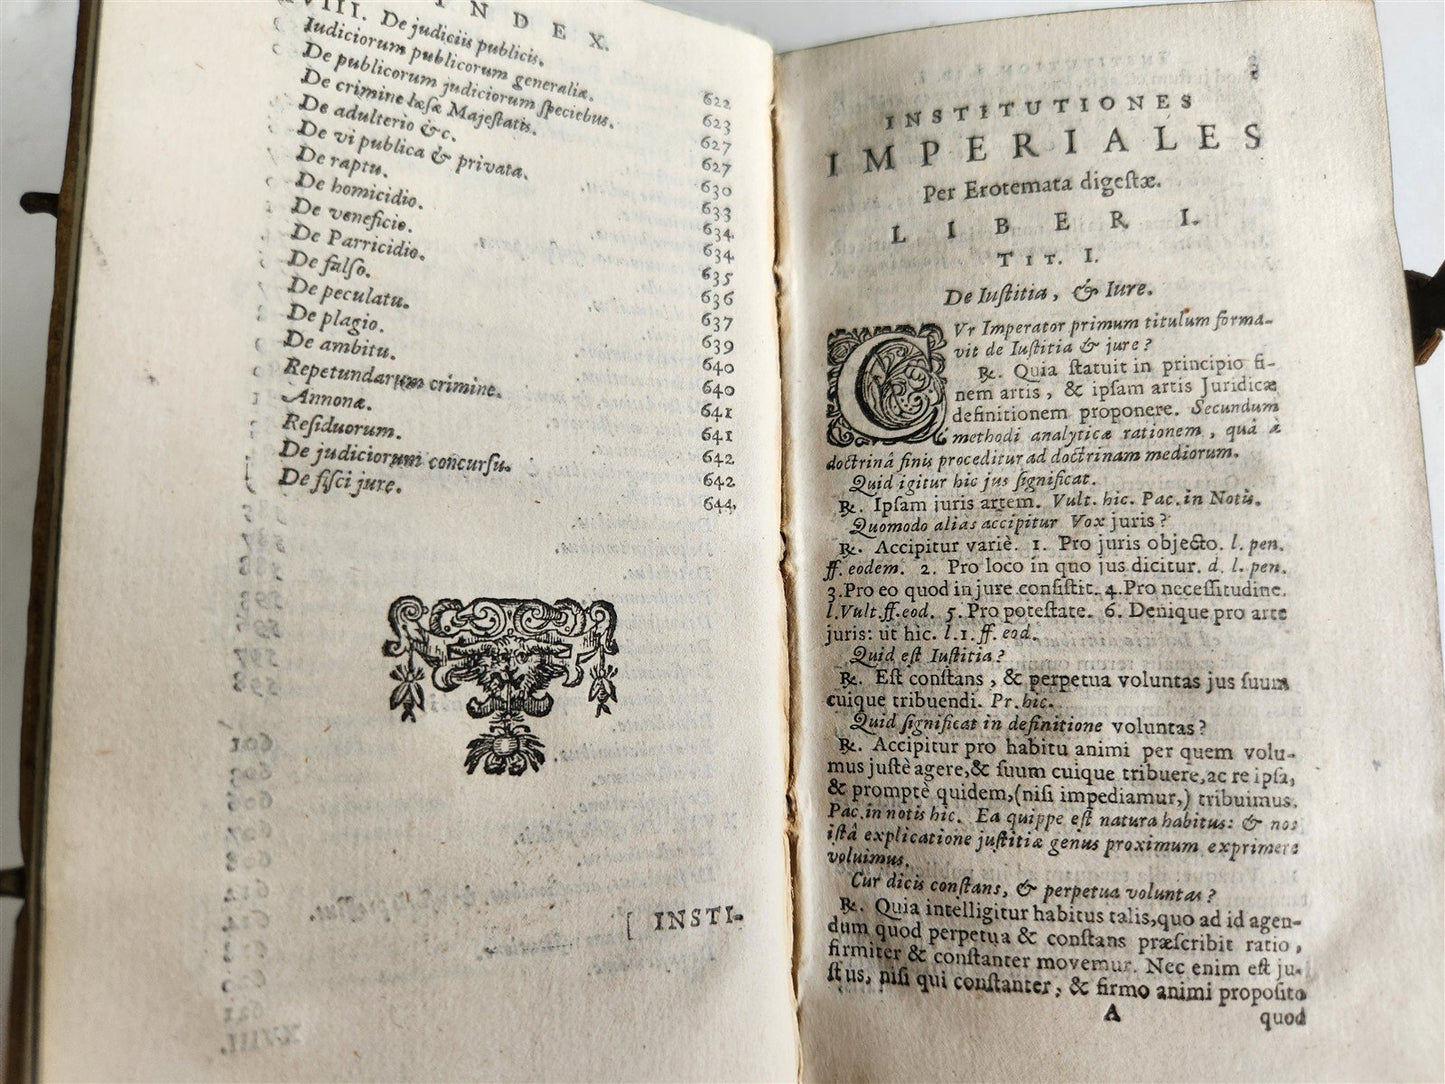 INDEX.
XVIII. De judiciis publicis.
Iudiciorum publicorum generalia. 622
De publicorum judiciorum speciebus. 623
De crimine læsæ Majestatis. 627
De adulterio &c. 627
De vi publica & privata. 630
De raptu. 633
De homicidio. 634
De veneficio. 634
De Parricidio. 635
De falso. 636
De peculatu. 637
De plagio. 639
De ambitu. 640
Repetundarum crimine. 640
Annonæ. 641
Residuorum. 641
De judiciorum concursu. 642
De fisci jure. 642
644.
[ INSTI-
INSTITUTIONES
IMPERIALES
Per Erotemata digestæ.
LIBER I.
TIT. I.
De Iustitia, & Iure.
CUr Imperator primum titulum forma-
vit de Iustitia & jure?
℞. Quia statuit in principio fi-
nem artis, & ipsam artis Juridicæ
definitionem proponere. Secundum
methodi analyticæ rationem, quâ à
doctrinâ finis proceditur ad doctrinam mediorum.
Quid igitur hic jus significat.
℞. Ipsam juris artem. Vult. hic. Pac. in Notis.
Quomodo alias accipitur Vox juris?
℞. Accipitur variè. 1. Pro juris objecto. l. pen.
ff. eodem. 2. Pro loco in quo jus dicitur. d. l. pen.
3. Pro eo quod in jure consistit. 4. Pro necessitudine.
l. Vult. ff. eod. 5. Pro potestate. 6. Denique pro arte
juris: ut hic. l. 1. ff. eod.
Quid est Iustitia?
℞. Est constans, & perpetua voluntas jus suum
cuique tribuendi. Pr. hic.
Quid significat in definitione voluntas?
℞. Accipitur pro habitu animi per quem volu-
mus justè agere, & suum cuique tribuere, ac re ipsa,
& promptè quidem, (nisi impediamur,) tribuimus.
Pac. in notis hic. Ea quippe est natura habitus: & nos
istâ explicatione justitiæ genus proximum exprimere
voluimus.
Cur dicis constans, & perpetua voluntas?
℞. Quia intelligitur habitus talis, quo ad id agen-
dum quod perpetua & constans præscribit ratio,
firmiter & constanter movemur. Nec enim est ju-
stus, nisi qui constanter, & firmo animi proposito
A quod